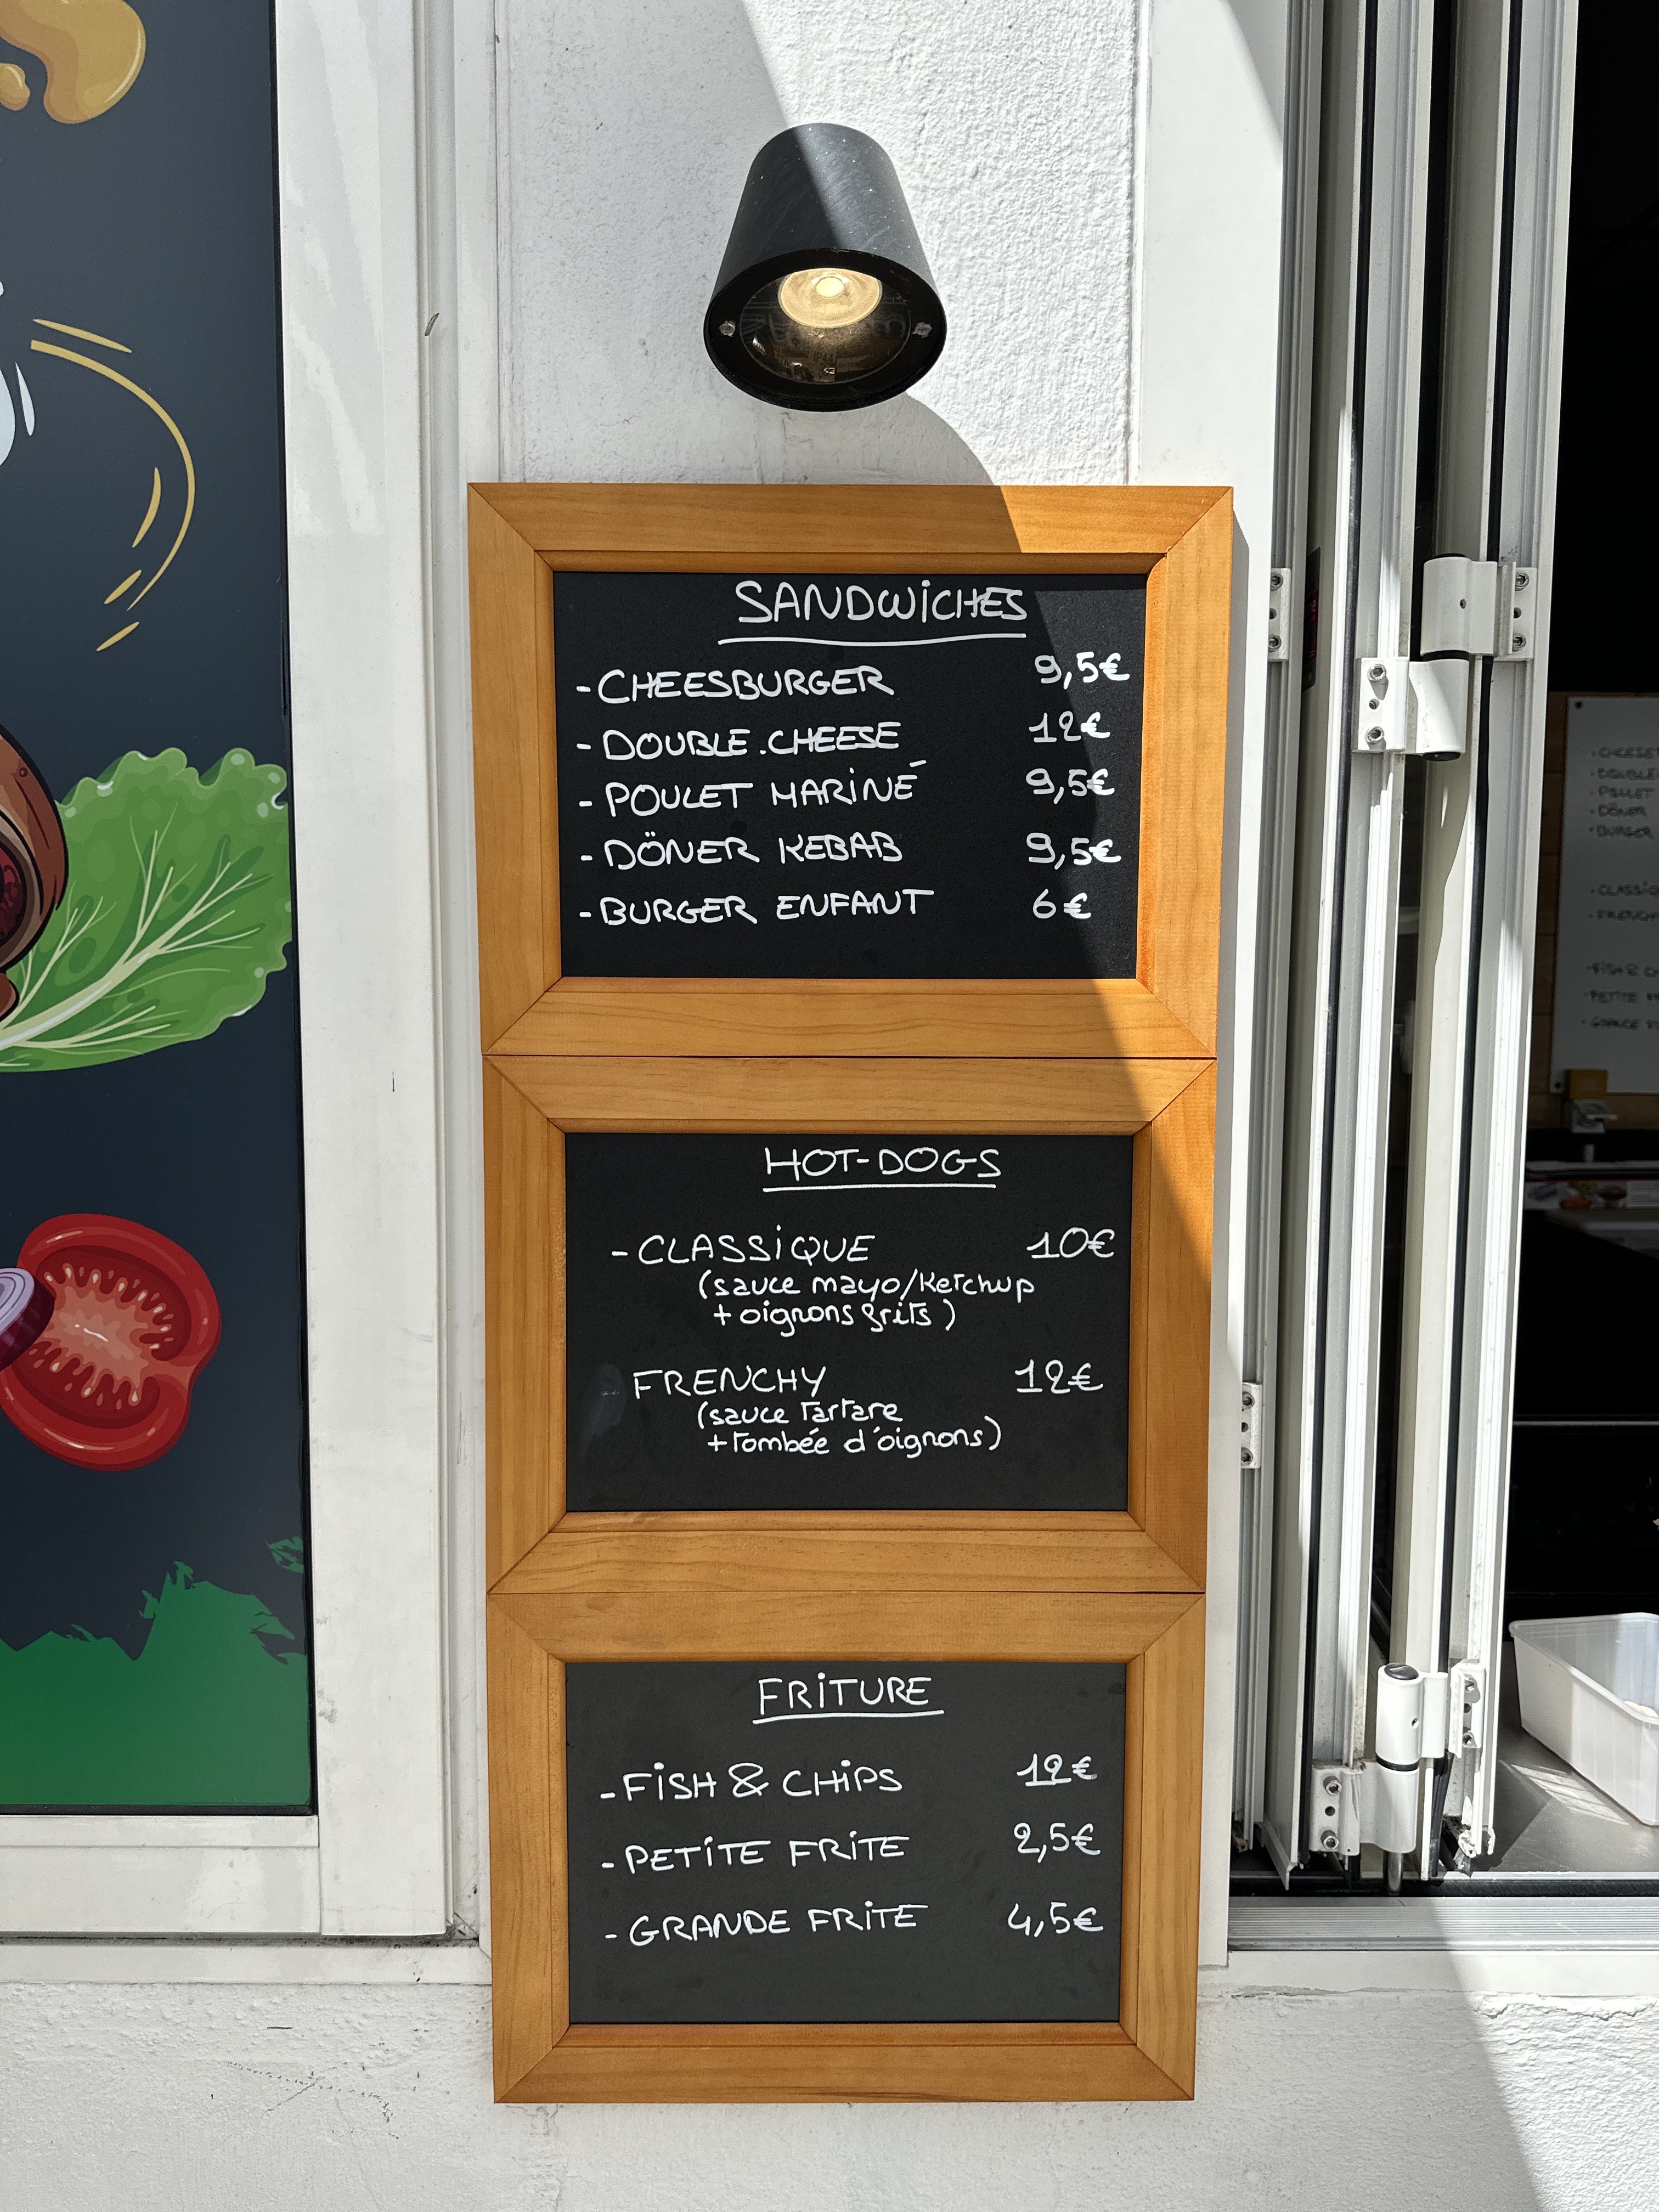 IP44
SANDWICHES
- CHEESBURGER 9,5€
- DOUBLE.CHEESE 12€
- POULET MARINÉ 9,5€
- DÖNER KEBAB 9,5€
- BURGER ENFANT 6€
HOT-DOGS
- CLASSIQUE 10€
(sauce mayo/Ketchup
+ oignons frits)
FRENCHY 12€
(sauce Tartare
+ Tombée d'oignons)
FRITURE
- FISH & CHIPS 12€
- PETITE FRITE 2,5€
- GRANDE FRITE 4,5€
POULET
DÖNER
BURGER
FISH &
PETITE